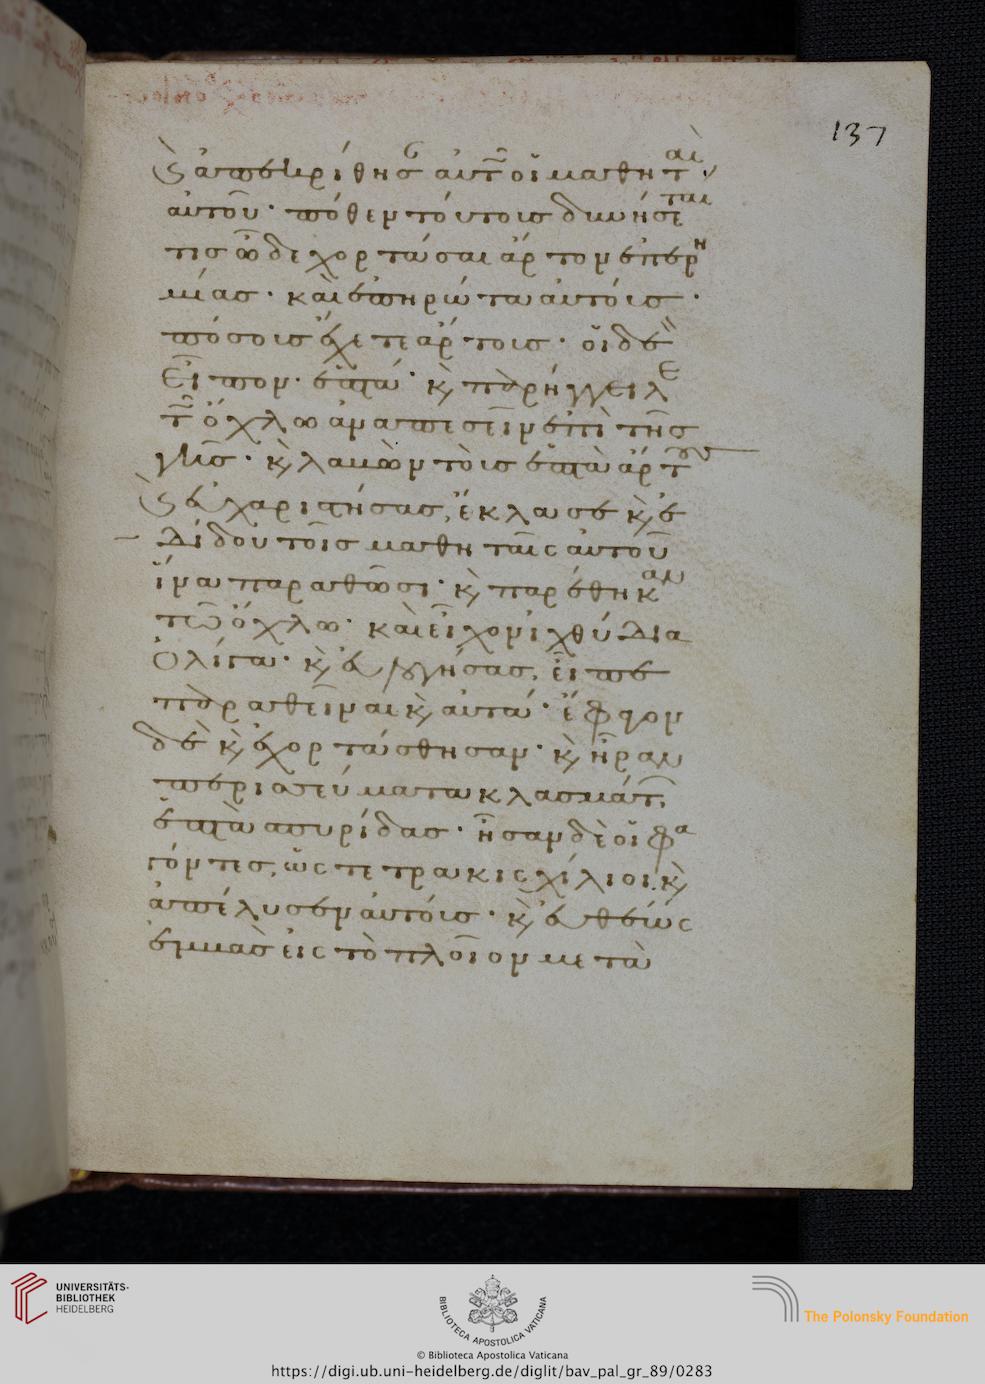 137
ϗ ἀπεκρίθησ αὐτῶ οἱ μαθηταὶ
αὐτοῦ· πόθεν τούτοις δυνήσεται
τις ὧδε χορτάσαι ἄρτον ἐπ ἐρη
μίας· καὶ ἐπηρώτα αὐτόις·
πόσοις ἔχετε ἄρτοις· οἱ δὲ
εἶπον· ἑπτά· ϗ παρήγγειλε
τῶ ὄχλω ἀναπεσεῖν ἐπὶ τῆς
γῆς· ϗ λαβὼν τοὺς ἑπτὰ ἄρτους
ϗ εὐχαριστήσας, ἔκλασε ϗ ἐ
δίδου τοῖς μαθηταῖς αὐτοῦ
ἵνα παραθῶσι· ϗ παρέθηκαν
τῶ ὄχλω· καὶ εἶχον ἰχθύδια
ὀλίγα· ϗ εὐλογήσας, εἶπε
παραθεῖναι ϗ αὐτά· ἔφαγον
δὲ ϗ ἐχορτάσθησαν· ϗ ἦραν
περισσεύματα κλασμάτων
ἑπτὰ σπυρίδας· ἦσαν δὲ οἱ φα
γόντες, ὡς τετρακισχίλιοι. ϗ
ἀπέλυσεν αὐτόυς· ϗ εὐθέως
ἐμβὰς εἰς τὸ πλοῖον μετὰ
UNIVERSITÄTS-
BIBLIOTHEK
HEIDELBERG
BIBLIOTECA APOSTOLICA VATICANA
The Polonsky Foundation
© Biblioteca Apostolica Vaticana
https://digi.ub.uni-heidelberg.de/diglit/bav_pal_gr_89/0283